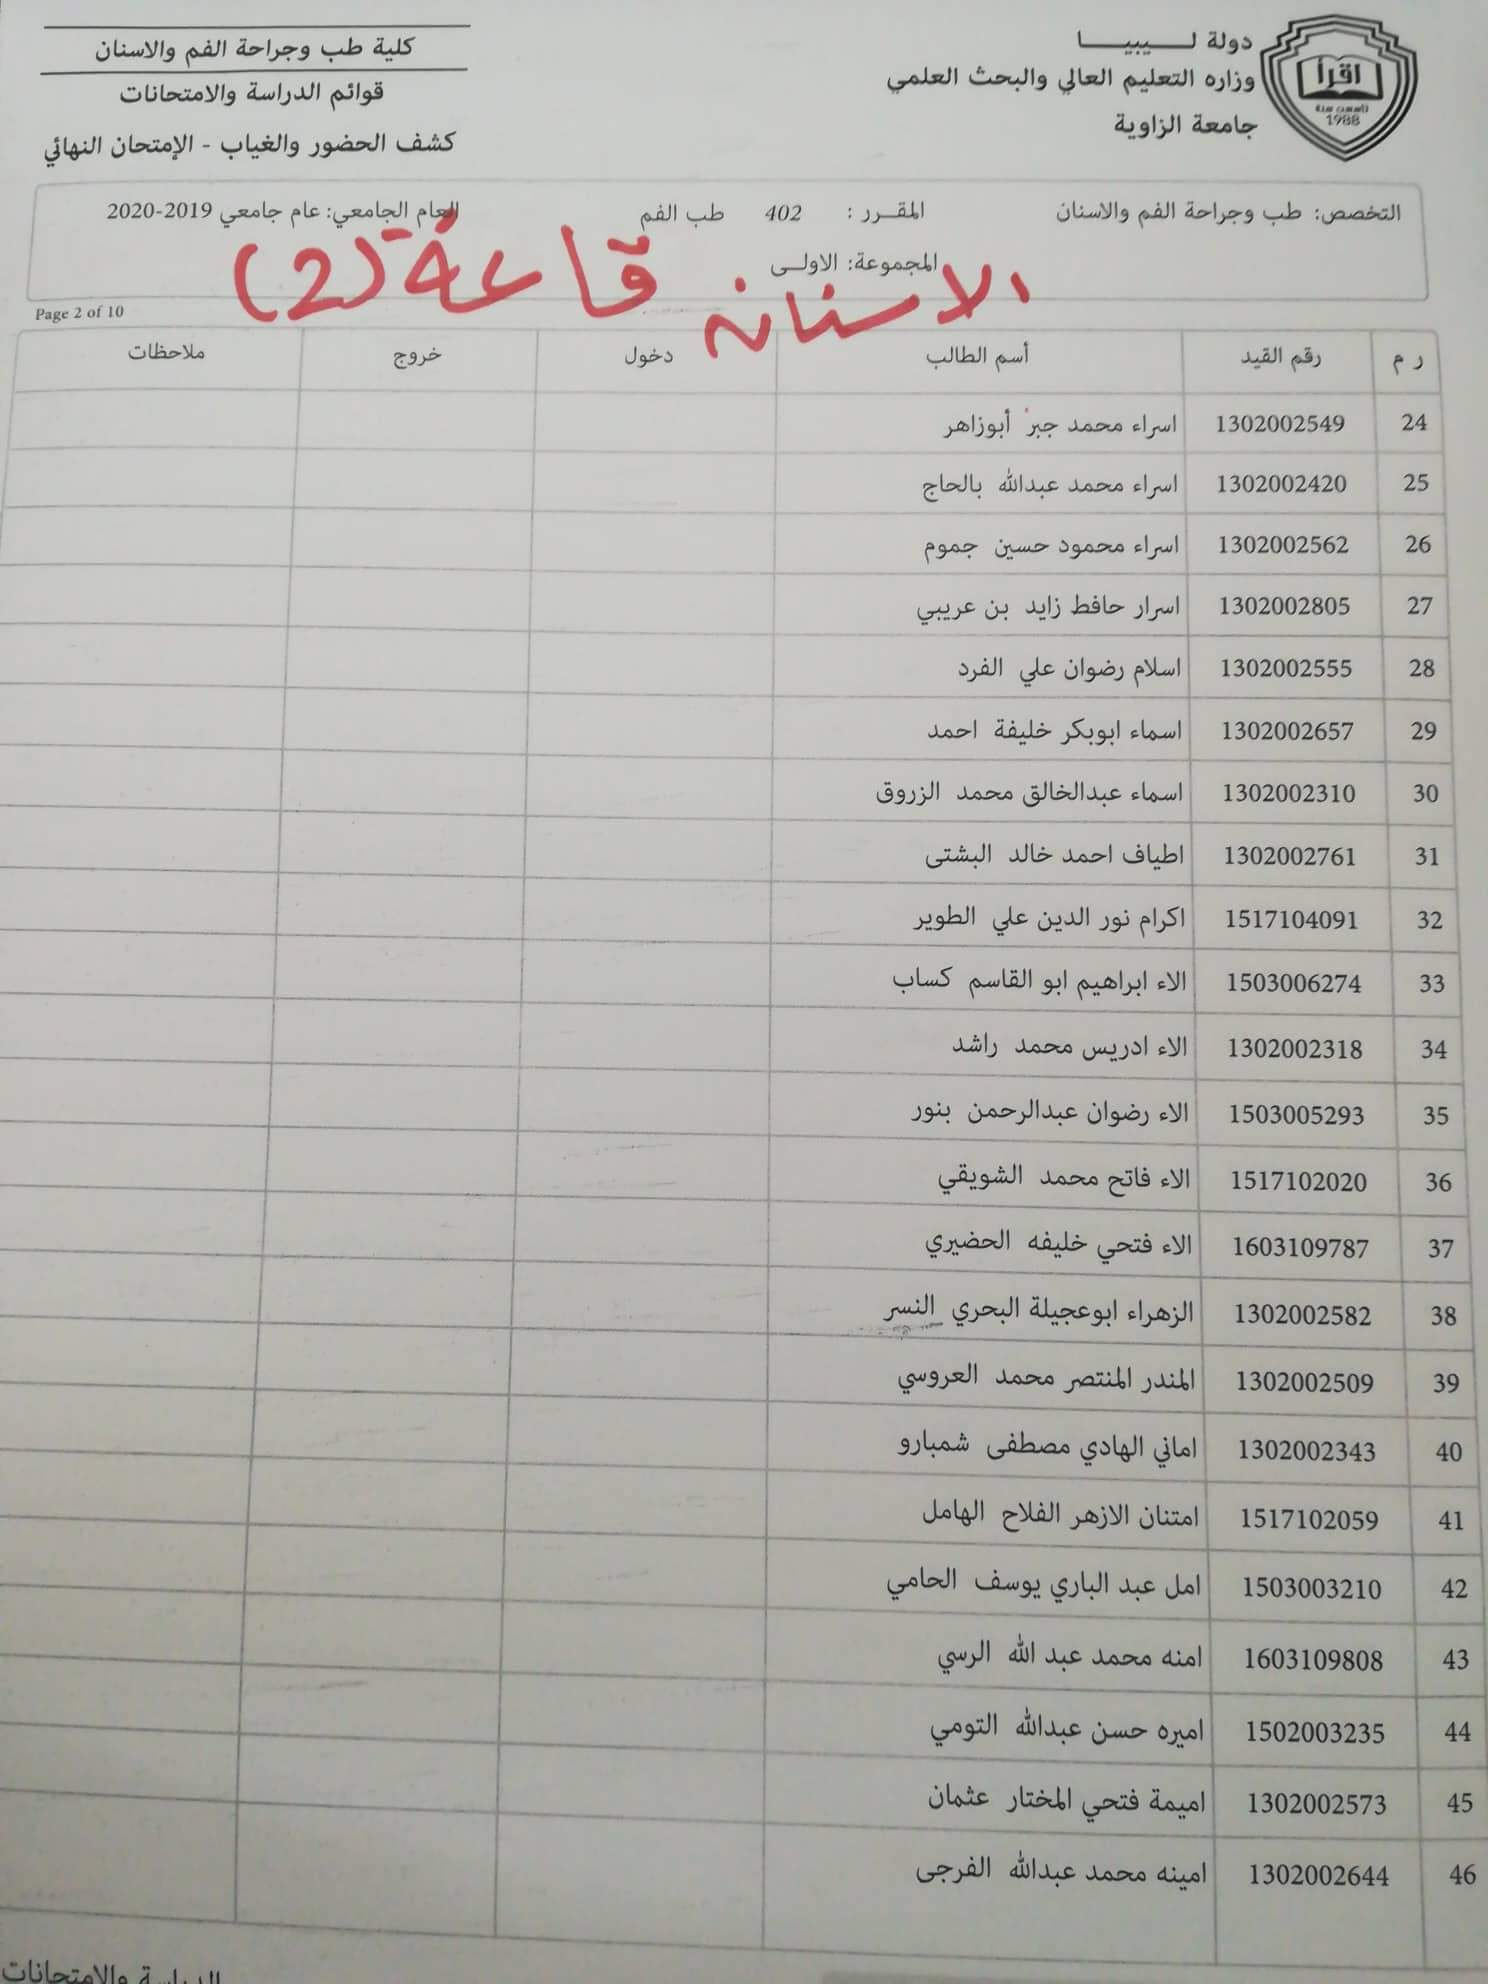 دولة ليبيا
وزاره التعليم العالي والبحث العلمي
جامعة الزاوية
اقرأ
1988
كلية طب وجراحة الفم والاسنان
قوائم الدراسة والامتحانات
كشف الحضور والغياب - الإمتحان النهائي
التخصص: طب وجراحة الفم والاسنان المقرر : 402 طب الفم العام الجامعي: عام جامعي 2019-2020
المجموعة: الاولى
الاسنان قاعة (2)
Page 2 of 10
ر م رقم القيد أسم الطالب دخول خروج ملاحظات
24 1302002549 اسراء محمد جبر أبوزاهر
25 1302002420 اسراء محمد عبدالله بالحاج
26 1302002562 اسراء محمود حسين جموم
27 1302002805 اسرار حافط زايد بن عريبي
28 1302002555 اسلام رضوان علي الفرد
29 1302002657 اسماء ابوبكر خليفة احمد
30 1302002310 اسماء عبدالخالق محمد الزروق
31 1302002761 اطياف احمد خالد البشتى
32 1517104091 اكرام نور الدين علي الطوير
33 1503006274 الاء ابراهيم ابو القاسم كساب
34 1302002318 الاء ادريس محمد راشد
35 1503005293 الاء رضوان عبدالرحمن بنور
36 1517102020 الاء فاتح محمد الشويقي
37 1603109787 الاء فتحي خليفه الحضيري
38 1302002582 الزهراء ابوعجيلة البحري النسر
39 1302002509 المندر المنتصر محمد العروسي
40 1302002343 اماني الهادي مصطفى شمبارو
41 1517102059 امتنان الازهر الفلاح الهامل
42 1503003210 امل عبد الباري يوسف الحامي
43 1603109808 امنه محمد عبد الله الرسي
44 1502003235 اميره حسن عبدالله التومي
45 1302002573 اميمة فتحي المختار عثمان
46 1302002644 امينه محمد عبدالله الفرجى
الدراسة والامتحانات